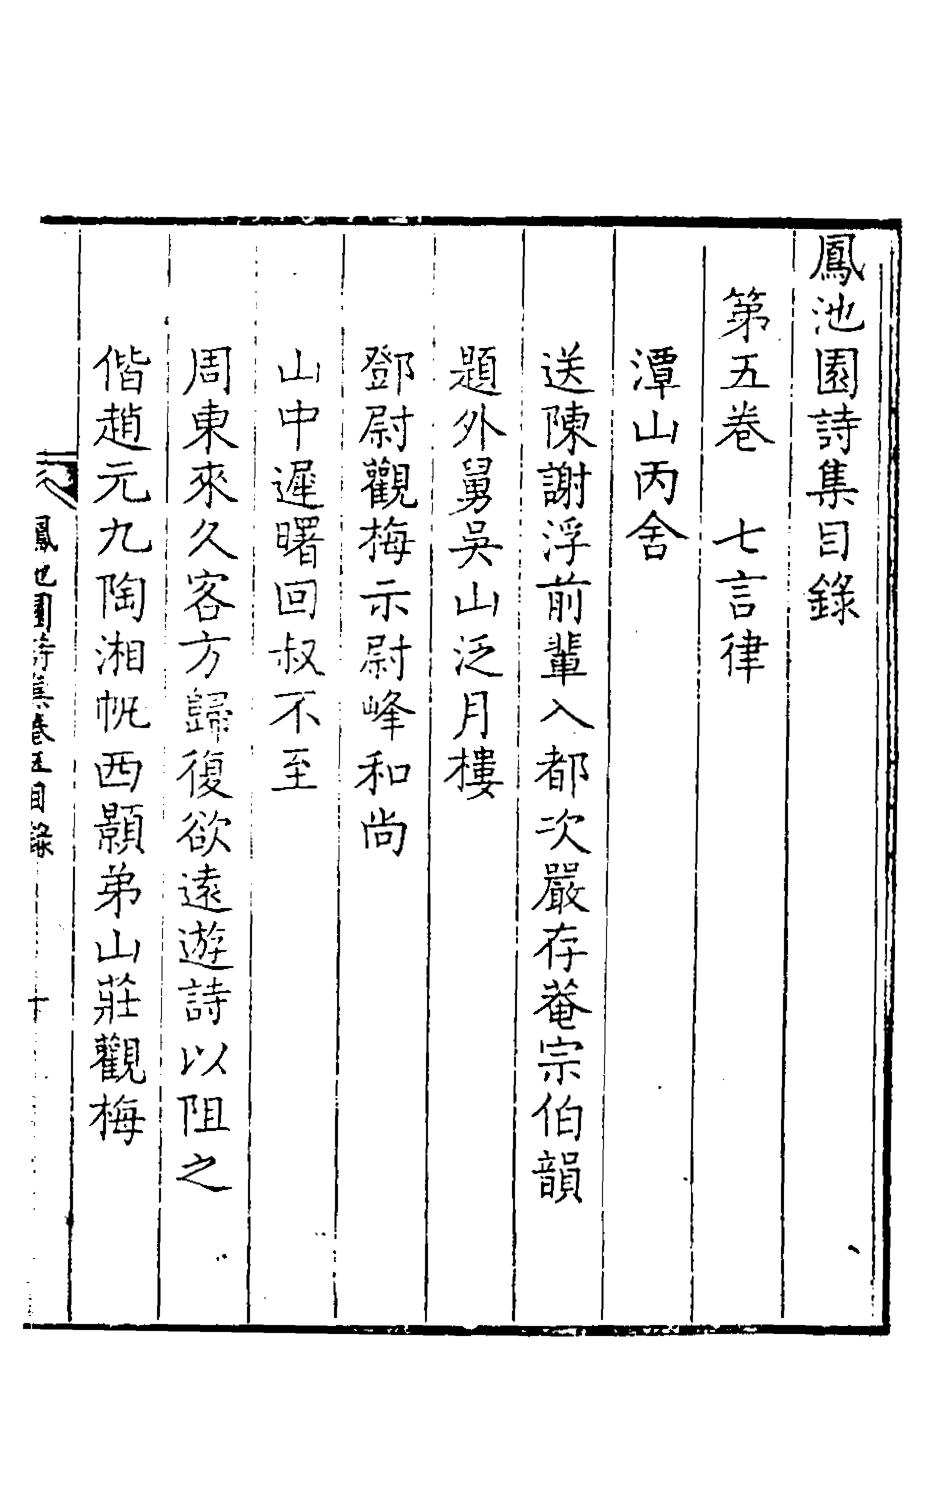 鳳池園詩集目錄
第五卷　七言律
潭山丙舍
送陳謝浮前輩入都次嚴存菴宗伯韻
題外舅吳山泛月樓
鄧尉觀梅示尉峰和尚
山中遲曙回叔不至
周東來久客方歸復欲遠遊詩以阻之
偕趙元九陶湘帆西顥弟山莊觀梅
鳳池園詩集卷五目錄